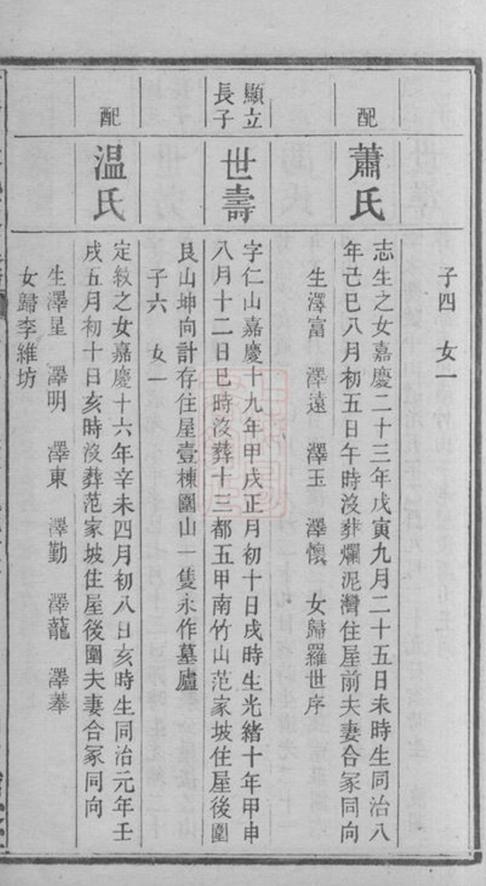 子四 女一
配
蕭氏
志生之女嘉慶二十三年戊寅九月二十五日未時生同治八
年己巳八月初五日午時沒葬爛泥灣住屋前夫妻合冢同向
生澤富 澤遠 澤玉 澤懷 女歸羅世序
顯立
長子
世壽
字仁山嘉慶十九年甲戌正月初十日戌時生光緒十年甲申
八月十二日巳時沒葬十三都五甲南竹山范家坡住屋後圍
艮山坤向計存住屋壹棟圍山一隻永作墓廬
子六 女一
配
温氏
定紋之女嘉慶十六年辛未四月初八日亥時生同治元年壬
戌五月初十日亥時沒葬范家坡住屋後圍夫妻合冢同向
生澤星 澤明 澤東 澤勤 澤龍 澤摹
女歸李維坊